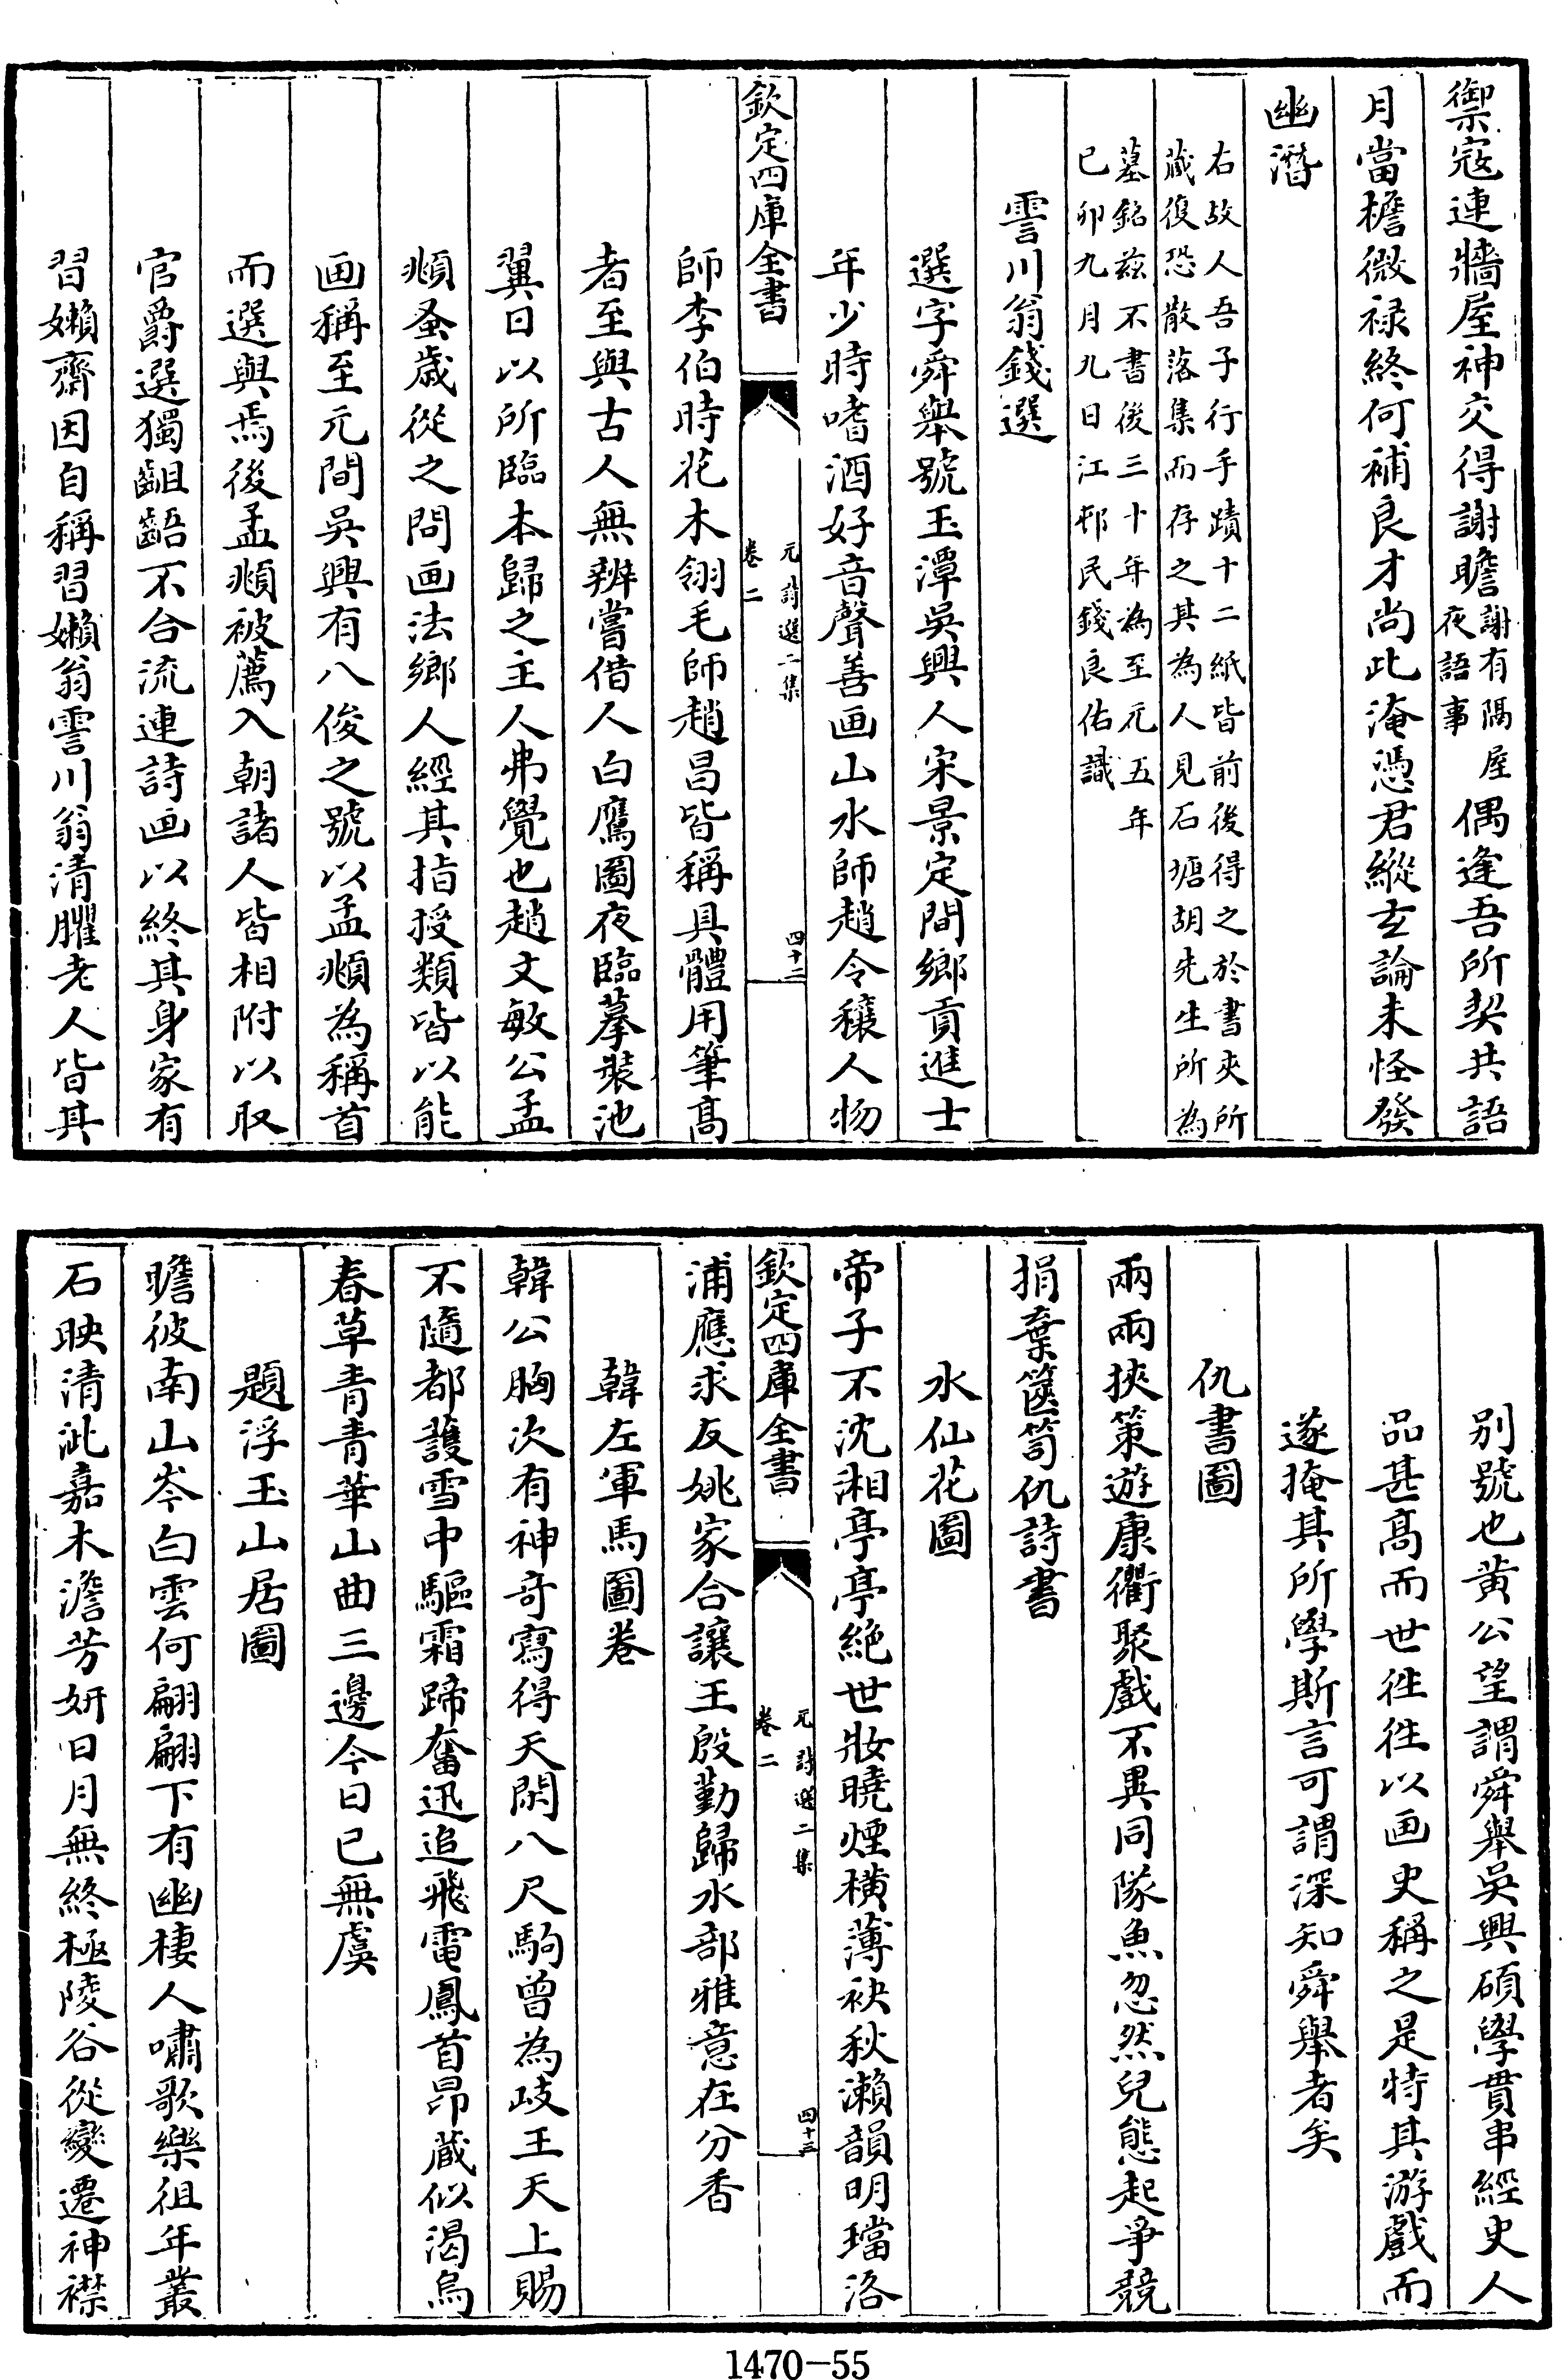 禦寇連牆屋神交得謝瞻謝有隅屋夜語事偶逢吾所契共語
月當檐微禄終何補良才尚此淹憑君縱玄論未怪發
幽潛
右故人吾子行手蹟十二紙皆前後得之於書夾所
藏復恐散落集而存之其為人見石塘胡先生所為
墓銘兹不書後三十年為至元五年
已卯九月九日江邨民錢良佑識
霅川翁錢選
選字舜舉號玉潭吳興人宋景定間鄉貢進士
年少時嗜酒好音聲善画山水師趙令穰人物
欽定四庫全書
元詩選二集
卷二
四十二
師李伯時花木翎毛師趙昌皆稱具體用筆髙
者至與古人無辨嘗借人白鷹圖夜臨摹裝池
翼日以所臨本歸之主人弗覺也趙文敏公孟
頫蚤歲從之問画法鄉人經其指授類皆以能
画稱至元間吳興有八俊之號以孟頫為稱首
而選與焉後孟頫被薦入朝諸人皆相附以取
官爵選獨齟齬不合流連詩画以終其身家有
習嬾齋因自稱習嬾翁霅川翁清臞老人皆其
別號也黄公望謂舜舉吳興碩學貫串經史人
品甚髙而世徃徃以画史稱之是特其游戲而
遂掩其所學斯言可謂深知舜舉者矣
仇書圖
兩兩挾策遊康衢聚戲不異同隊魚忽然兒態起爭競
捐棄篋笥仇詩書
水仙花圖
帝子不沈湘亭亭絶世妝曉煙横薄袂秋瀨韻明璫洛
欽定四庫全書
元詩選二集
卷二
四十三
浦應求友姚家合讓王殷勤歸水部雅意在分香
韓左軍馬圖卷
韓公胸次有神奇寫得天閑八尺駒曾為岐王天上賜
不隨都䕶雪中驅霜蹄奮迅追飛電鳳首昂藏似渴烏
春草青青華山曲三邊今日已無虞
題浮玉山居圖
瞻彼南山岑白雲何翩翩下有幽棲人嘯歌樂徂年叢
石映清泚嘉木澹芳妍日月無終極陵谷從變遷神襟
1470-55